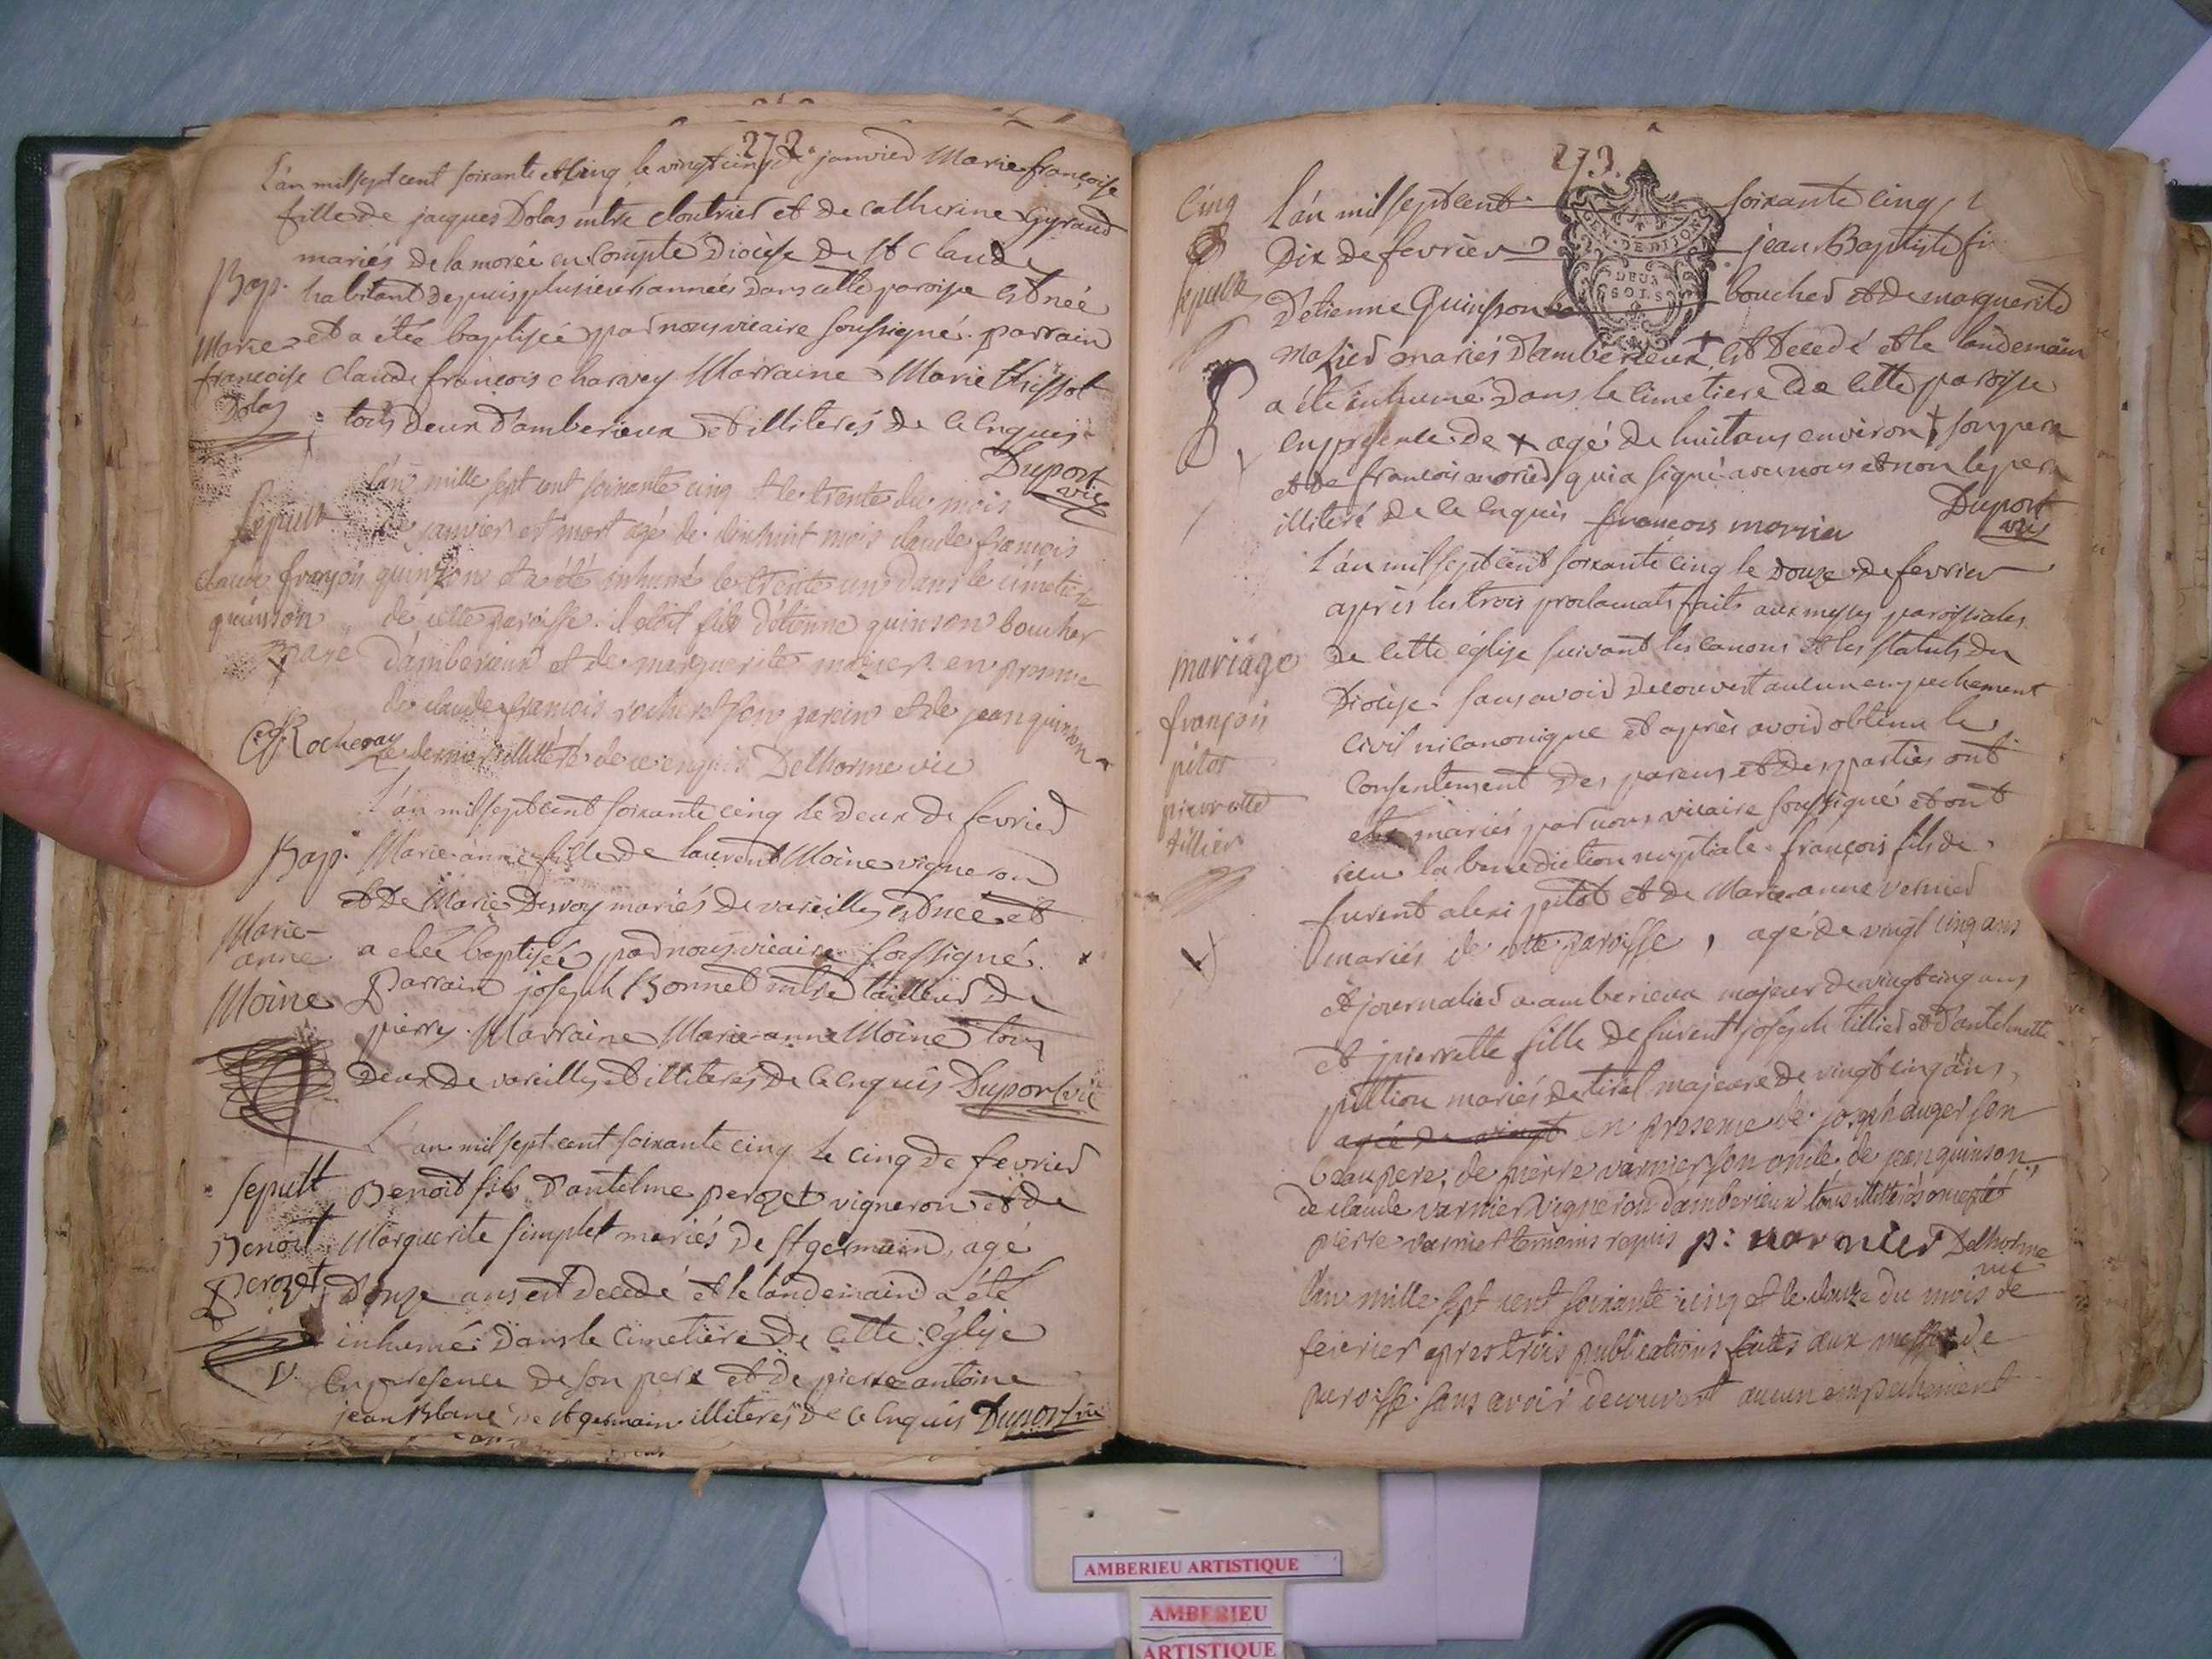 272
L'an mil sept cent soixante et cinq le vingt cinq de janvier Marie françoise
fille de jacques Dolas mtre cloutrier et de catherine Gyraud
mariés de la morée en Compté Diocèse de St Claude
Bap. habitant depuis plusieurs années dans cette paroisse est née
Marie et a étée baptisée par nous vicaire soussigné. parrain
françoise Claude françois charvey Marraine Marie thissot
Dolas tous deux d'amberieux et illiterés de ce Enquis
Duport vic
L'an mille sept cent soixante cinq et le trente du mois
Sepult de janvier est mort agé de dixhuit mois claude françois
Claude françois quinson et a été inhumé le trente un dans le cimetiere
quinson de cette paroisse. il etoit fils d'étienne quinson boucher
d'amberieux et de marguerite mazier en presence
de claude françois rocheray son parein et de jean quinson
C.f. Rocheray ce dernier illitteré de ce enquis Delhorme vic
L'an mil sept cent soixante cinq le deux de fevrier
Bap. Marie-anne fille de laurent Moine vigneron
et de Marie Desvoy mariés de vareilles est née et
Marie-
anne a etée baptisée par nous vicaire soussigné.
Moine Parrain joseph Bonnet mtre tailleur de
pierres. Marraine Marie-anne Moine tous
deux de vareilles et illiterés de ce Enquis Duport vic
L'an mil sept cent soixante cinq le cinq de fevrier
Sepult Benoit fils d'antelme perozet vigneron et de
Benoit Marguerite simplet mariés de St germain, agé
Perozet Donze ans est decedé et le landemain a été
inhumé dans le cimetiere de cette église
En presence de son pere et de pierre antoine
jean Blanc de St germain illiterés de ce Enquis Duport vic
273.
GEN. DE DIJON
DEUX
SOLS
Cinq L'an mil sept cent soixante cinq
Dix de fevrier jean Baptiste
Sepulte D'etienne Quinson boucher et de marguerite
Mazier mariés d'amberieux est decedé et le landemain
a été inhumé dans le cimetiere de cette paroisse
en presence de + agé de huit ans environ + son pere
et de francois morier qui a signé avec nous et non le pere
illiteré de ce Enquis françois morier Duport vic
L'an mil sept cent soixante cinq le douze de fevrier
après les trois proclamats faits aux messes paroissiales
mariage de cette église suivant les canons et les statuts du
Diocèse. sans avoir decouvert aucun empechement
françois
civil ni canonique et après avoir obtenu le
pitot
consentement des parens et des parties ont
pierrette
tillier
eté mariés par nous vicaire soussigné et ont
recu la benediction nuptiale. françois fils de
furent alexi pitot et de Marie-anne vernier
mariés de cette paroisse, agé de vingt cinq ans
et journalier a amberieux majeur de vingt cinq ans
et pierrette fille de furent joseph tillier et d'antelmette
pittion mariés de tiret majeure de vingt cinq ans,
agée de vingt en presence de joseph auger son
beaupere, de pierre varnier son oncle de jean quinson,
de claude varnier vigneron d'amberieux tous illitterés excepté
pierre varnier temoins requis p: varnier Delhorme
vic
L'an mille sept cent soixante cinq et le douze du mois de
feivrier apres trois publications faites aux messes de
paroisse sans avoir decouvert aucun empechement
AMBERIEU ARTISTIQUE
AMBERIEU
ARTISTIQUE